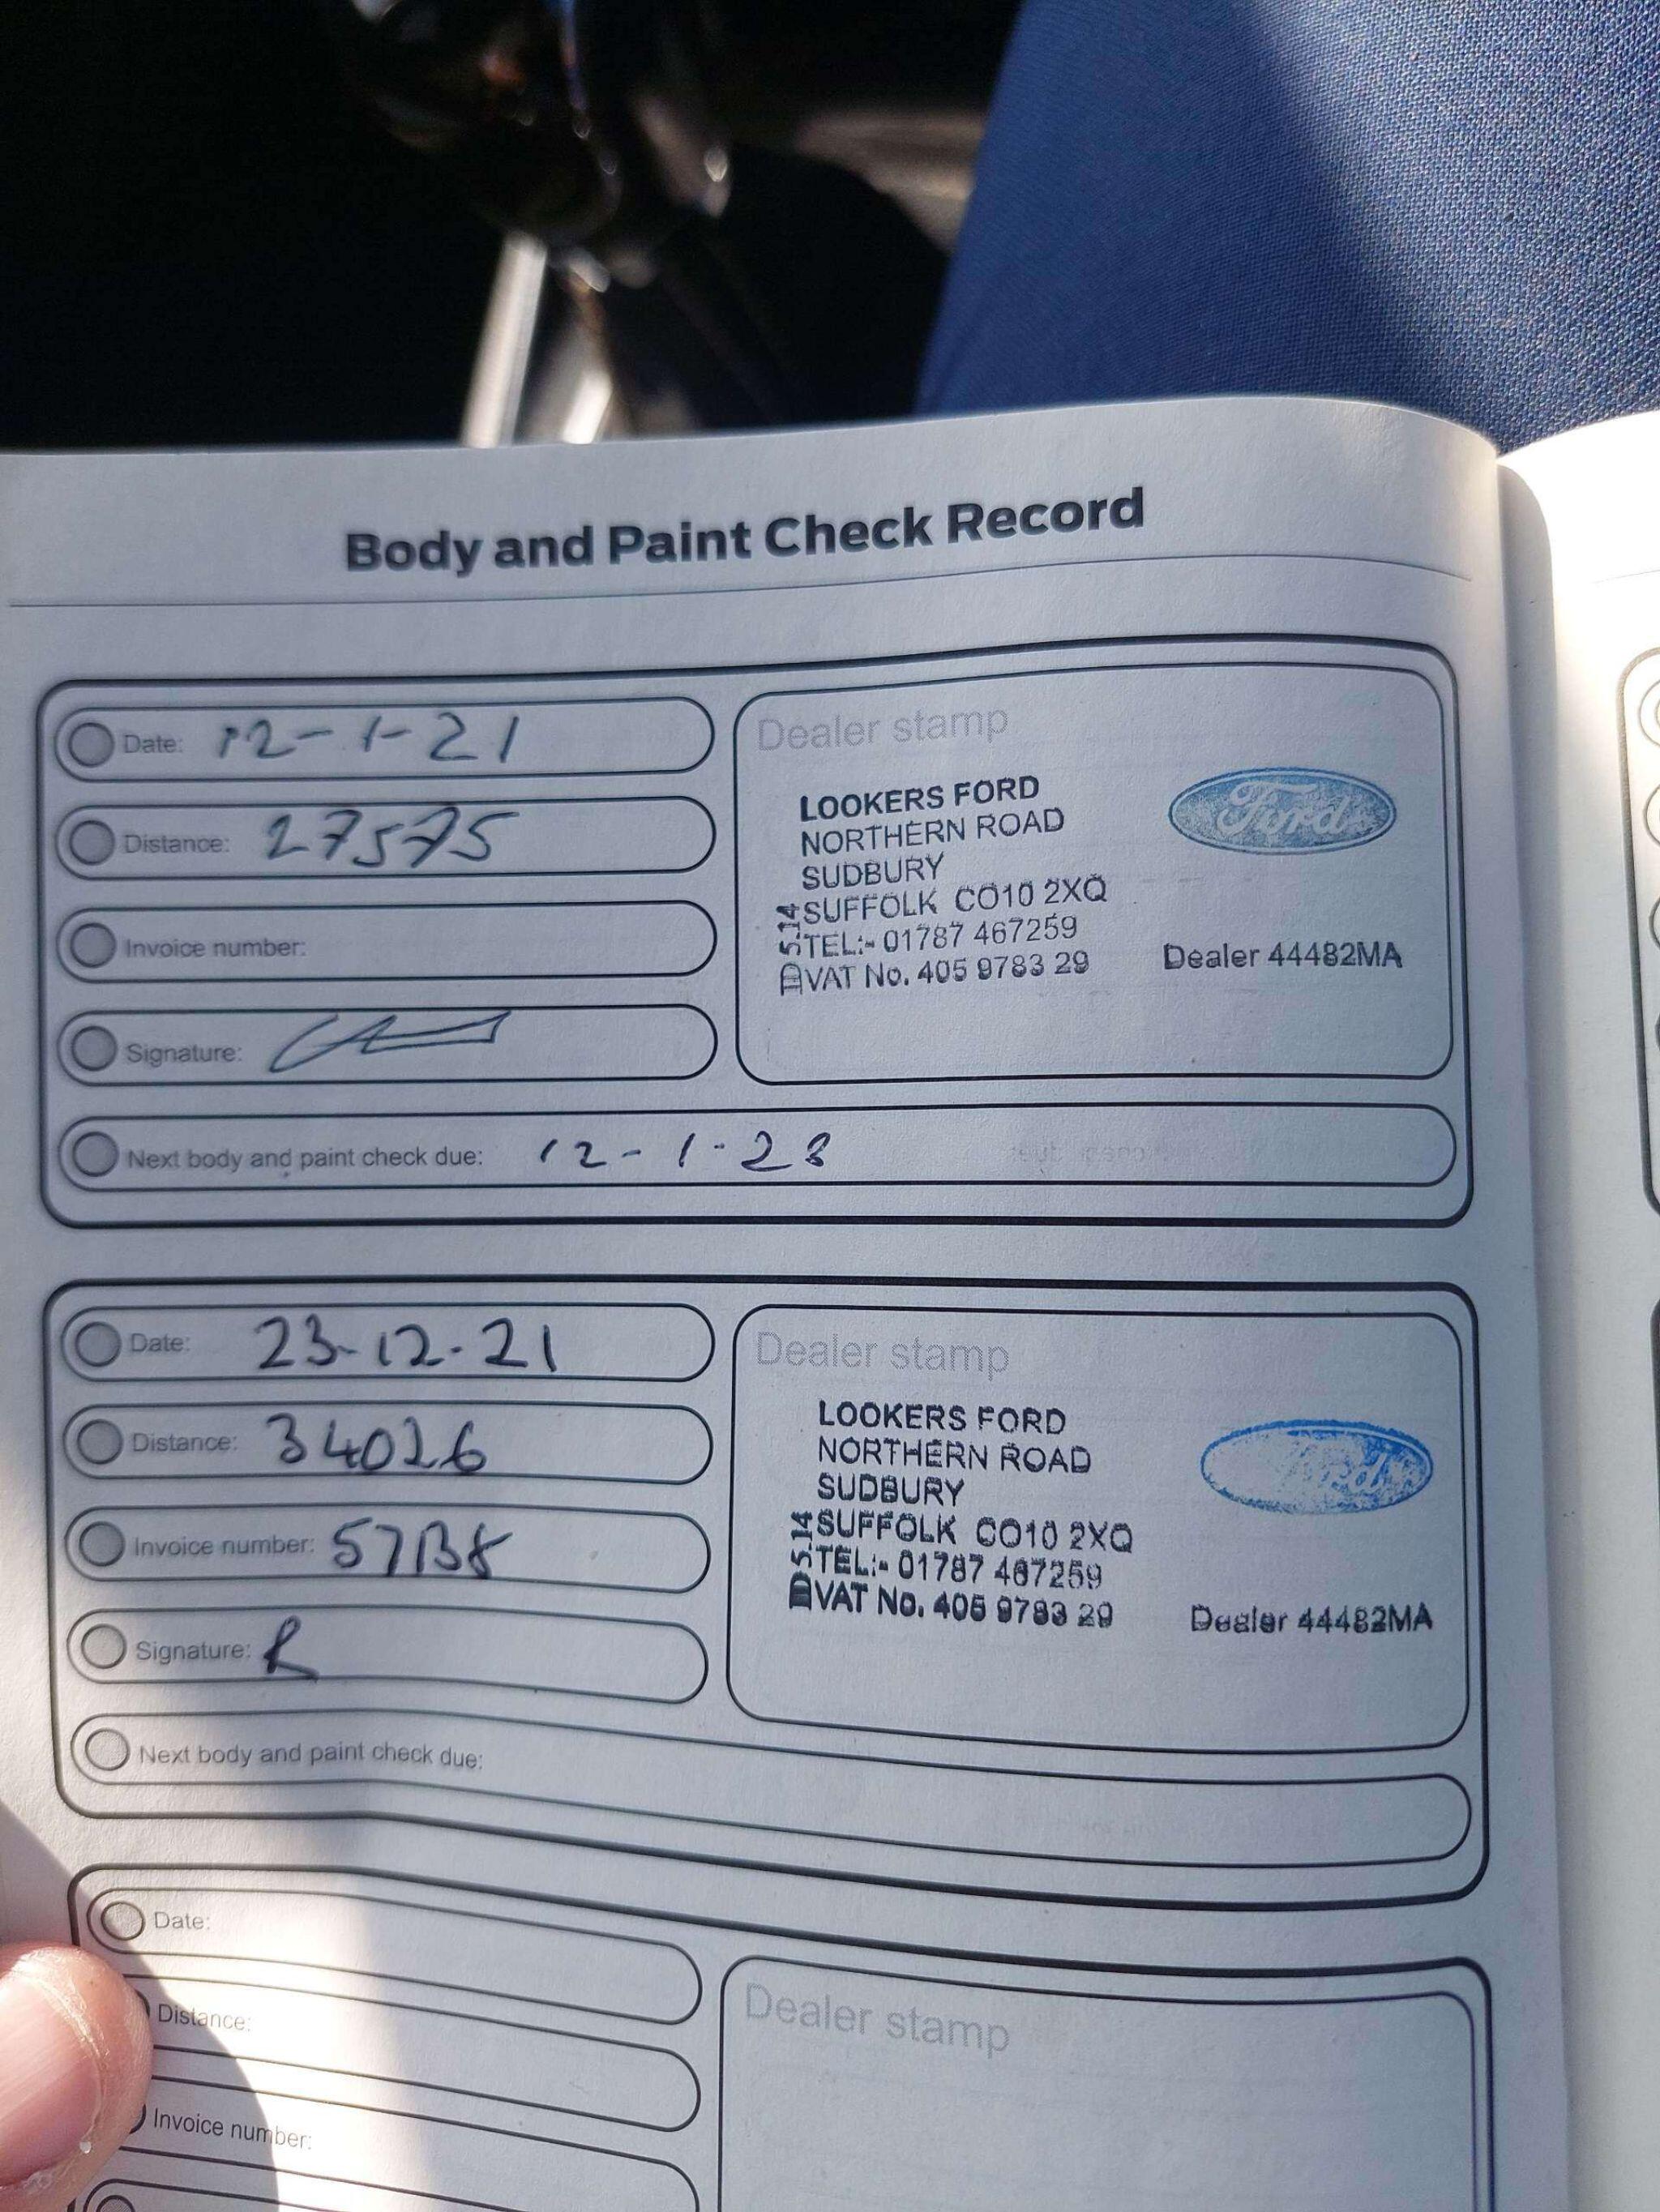 Body and Paint Check Record
Date: 12-1-21
Distance: 27575
Invoice number:
Signature:
Dealer stamp
LOOKERS FORD
NORTHERN ROAD
SUDBURY
SUFFOLK CO10 2XQ
TEL:- 01787 467259
VAT No. 405 9783 29
5.14
Ford
Dealer 44482MA
Next body and paint check due: 12-1-23
Date: 23-12-21
Distance: 34026
Invoice number:
Signature: R
Dealer stamp
LOOKERS FORD
NORTHERN ROAD
SUDBURY
SUFFOLK CO10 2XQ
TEL:- 01787 467259
VAT No. 405 9783 29
5.14
Ford
Dealer 44482MA
Next body and paint check due:
Date:
Distance:
Invoice number:
Dealer stamp